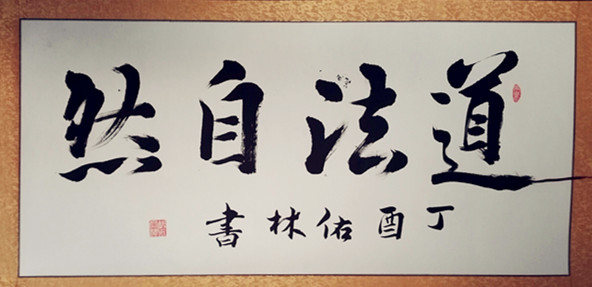 道法自然
丁酉佑林書